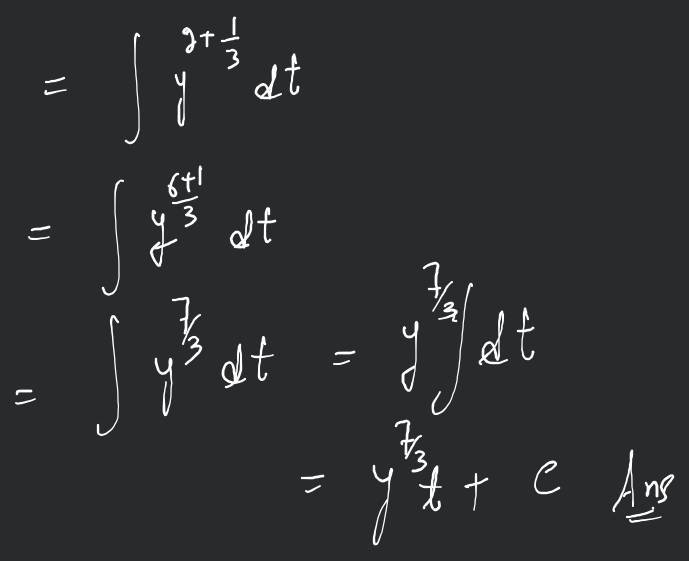 = ∫ y^{2+\frac{1}{3}} dt
= ∫ y^{\frac{6+1}{3}} dt
= ∫ y^{7/3} dt = y^{7/3} ∫ dt
= y^{7/3} t + c Ans